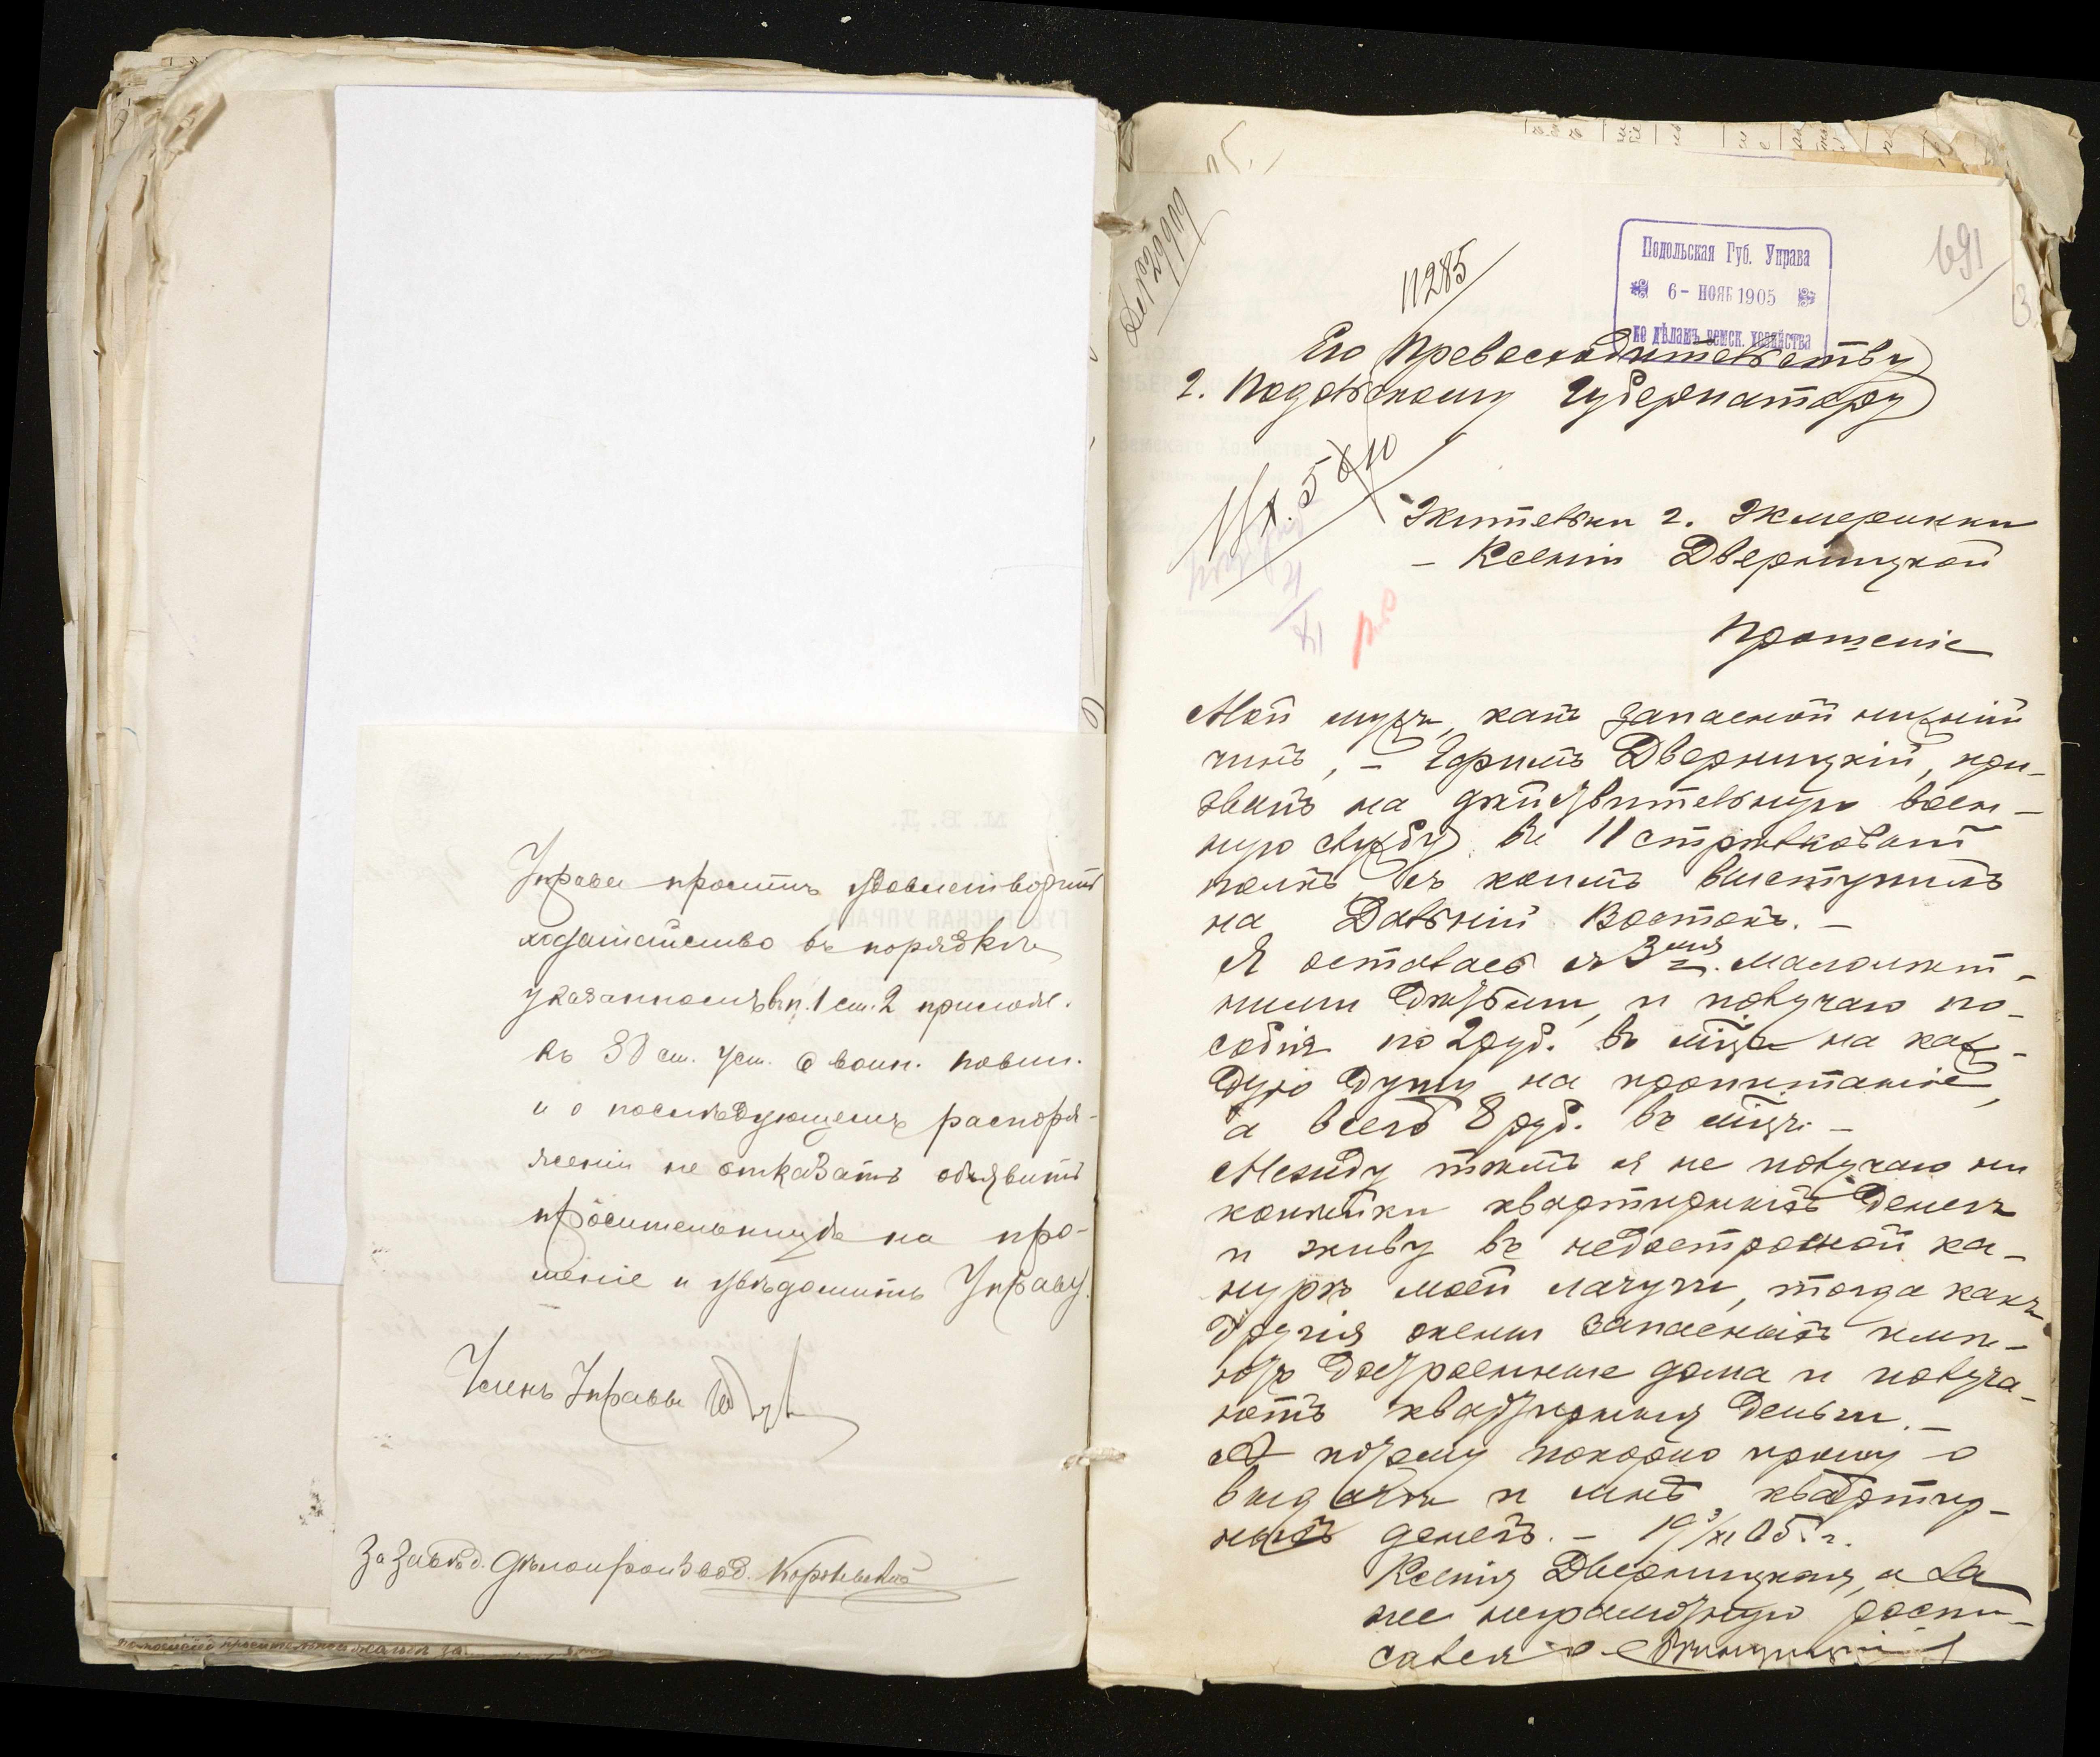 Управа проситъ удовлетворить
ходатайство въ порядкѣ
указанномъ въ п. 1 ст. 2 прилож.
къ 38 ст. Уст. о воин. повин.
и о послѣдующемъ распоря-
женіи не отказать объявить
просительницѣ на про-
шеніе и увѣдомить Управу.
Членъ Управы
За Завѣд. Дѣлопроизвод.
11285
Подольская Губ. Управа
6- НОЯБ 1905
по дѣламъ земск. хозяйства
691
Его Превосходительству
г. Подольскому Губернатору
Жительки г. Жмеринки
- Ксеніи Дверницкой
Прошеніе
Мой мужъ, какъ запасной нижній
чинъ, - Ефимъ Дверницкій, при-
званъ на дѣйствительную воен-
ную службу въ 11 стрѣлковый
полкъ, съ коимъ выступилъ
на Дальній Востокъ. -
Я осталась съ 3мя малолѣт-
ними дѣтьми, и получаю по-
собія по 2 руб. въ мѣц. на каж-
дую душу на пропитаніе,
а всего 8 руб. въ мѣц. -
Между тѣмъ я не получаю ни
копѣйки квартирныхъ денегъ
и живу въ недостроеной ка-
нурѣ моей лачуги, тогда какъ
другія жены запасныхъ имѣ-
ютъ достроенные дома и получа-
ютъ квартирныя деньги. -
А потому покорно прошу о
выдачѣ и мнѣ квартир-
ныхъ денегъ. - 19 3/XI 05 г.
Ксенія Дверницкая, а за
нее неграмотную роспи-
сался